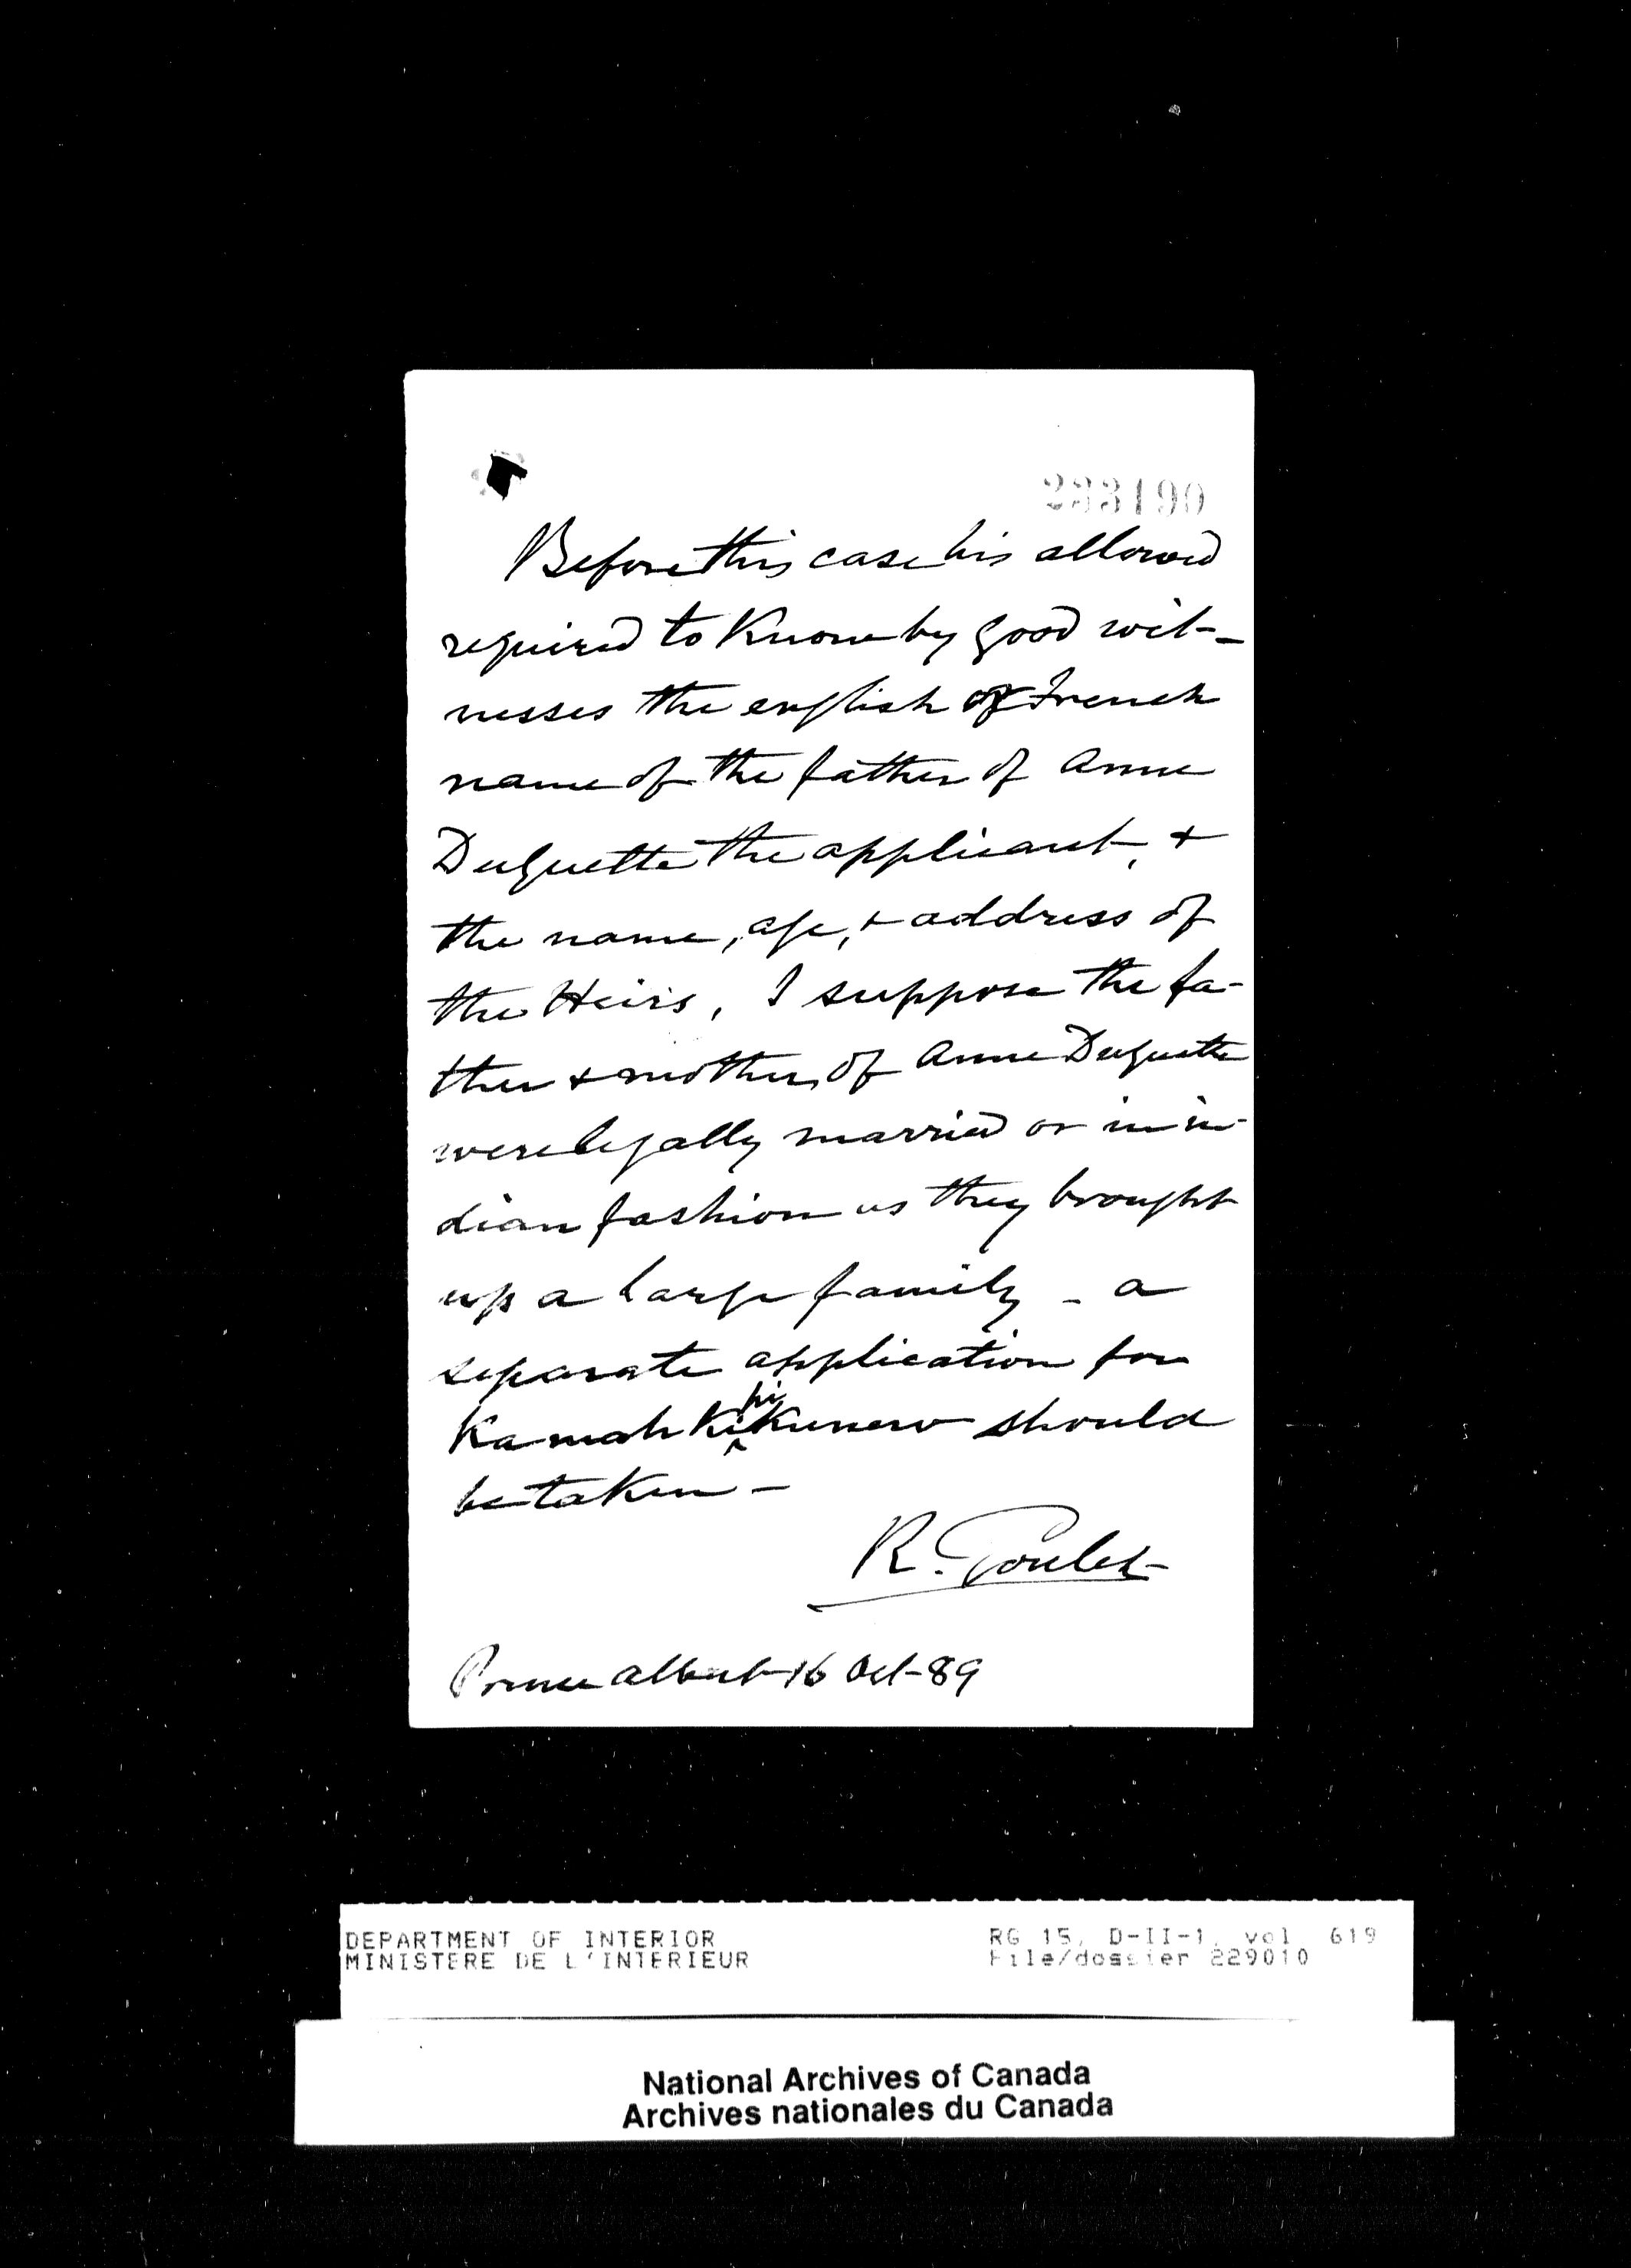 233190
Before this case his allowed
required to Know by good wit-
nesses the english or French
name of the father of Anne
Duguette the applicant, +
the name, age, + address of
the Heirs, I suppose the fa-
ther + mother of Anne Duguette
were legally married or in in-
dian fashion as they brought
up a large family - a
separate application for
KamahKipiKunew should
be taken -
R. Goulet
Prince Albert 16 Oct-89
DEPARTMENT OF INTERIOR RG 15, D-II-1, vol 619
MINISTERE DE L'INTERIEUR File/dossier 229010
National Archives of Canada
Archives nationales du Canada